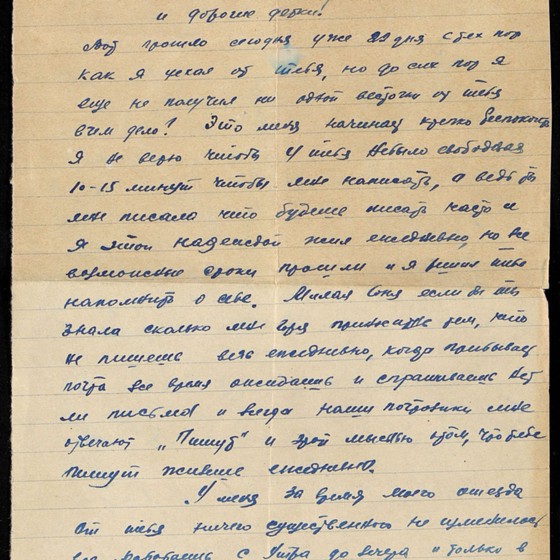 и дорогие детки!
Вот прошло сегодня уже 22 дня с тех пор
как я уехал от тебя, но до сих пор я
еще не получил ни одной весточки от тебя
в чем дело? Это меня начинает крепко беспокоить
Я не верю чтобы у тебя небыло свободных
10-15 минут чтобы мне написать, а ведь ты
мне писала что будешь писать часто и
я этой надеждой жил ежедневно, но все
возможные сроки прошли и я решил тебе
напомнить о себе. Милая если бы ты
знала сколько мне горя тем, что
не пишешь ежедневно, когда прибывает
почта все время ожидаешь и спрашиваешь нет
ли письма и всегда наши почтовики мне
отвечают „Пишут" и этой мыслью о том, что тебе
пишут живеше ежедневно.
У меня за время моего отъезда
от тебя ничего существенного не изменилось
работаешь с утра до вечера и только в